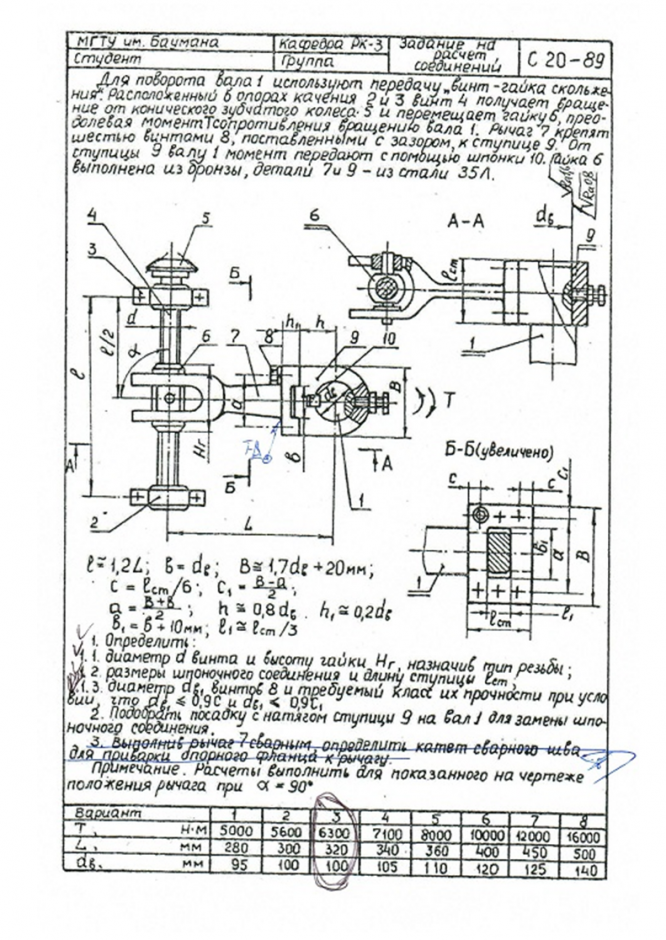 МГТУ им. Баумана Кафедра РК-3 Задание на расчет соединений С 20-89
Студент Группа
Для поворота вала 1 используют передачу „винт-гайка скольже-
ния". Расположенный в опорах качения 2 и 3 винт 4 получает враще-
ние от конического зубчатого колеса 5 и перемещает гайку 6, прео-
долевая момент Т сопротивления вращению вала 1. Рычаг 7 крепят
шестью винтами 8, поставленными с зазором, к ступице 9. От
ступицы 9 валу 1 момент передают с помощью шпонки 10. Гайка 6
выполнена из бронзы, детали 7 и 9 - из стали 35Л.
4 5
3
Б
d
l/2
l
α
6 7 8 9 10
h₁ h
a
dв
B
T
Hг
в
А А
Б
2 1
L
6 А-А dв 9
lст
1
Б-Б (увеличено)
c c₁ c
в₁ a B
1
lст l₁
l ≅ 1,2L; в = dв; B ≅ 1,7dв + 20мм;
c = lст/6; c₁ = B-a/2;
a = B+в/2; h ≅ 0,8dв. h₁ ≅ 0,2dв
в₁ = в + 10мм; l₁ ≅ lст/3
1. Определить:
1.1. диаметр d винта и высоту гайки Hг, назначив тип резьбы;
1.2. размеры шпоночного соединения и длину ступицы lст;
1.3. диаметр dв₁ винтов 8 и требуемый класс их прочности при усло-
вии, что dв₁ ≤ 0,9С и dв₁ ≤ 0,9С₁
2. Подобрать посадку с натягом ступицы 9 на вал 1 для замены шпо-
ночного соединения.
3. Выполнив рычаг 7 сварным, определить катет сварного шва
для приварки опорного фланца к рычагу.
Примечание. Расчеты выполнить для показанного на чертеже
положения рычага при α = 90°
Вариант 1 2 3 4 5 6 7 8
T, Н·м 5000 5600 6300 7100 8000 10000 12000 16000
L, мм 280 300 320 340 360 400 450 500
dв, мм 95 100 100 105 110 120 125 140